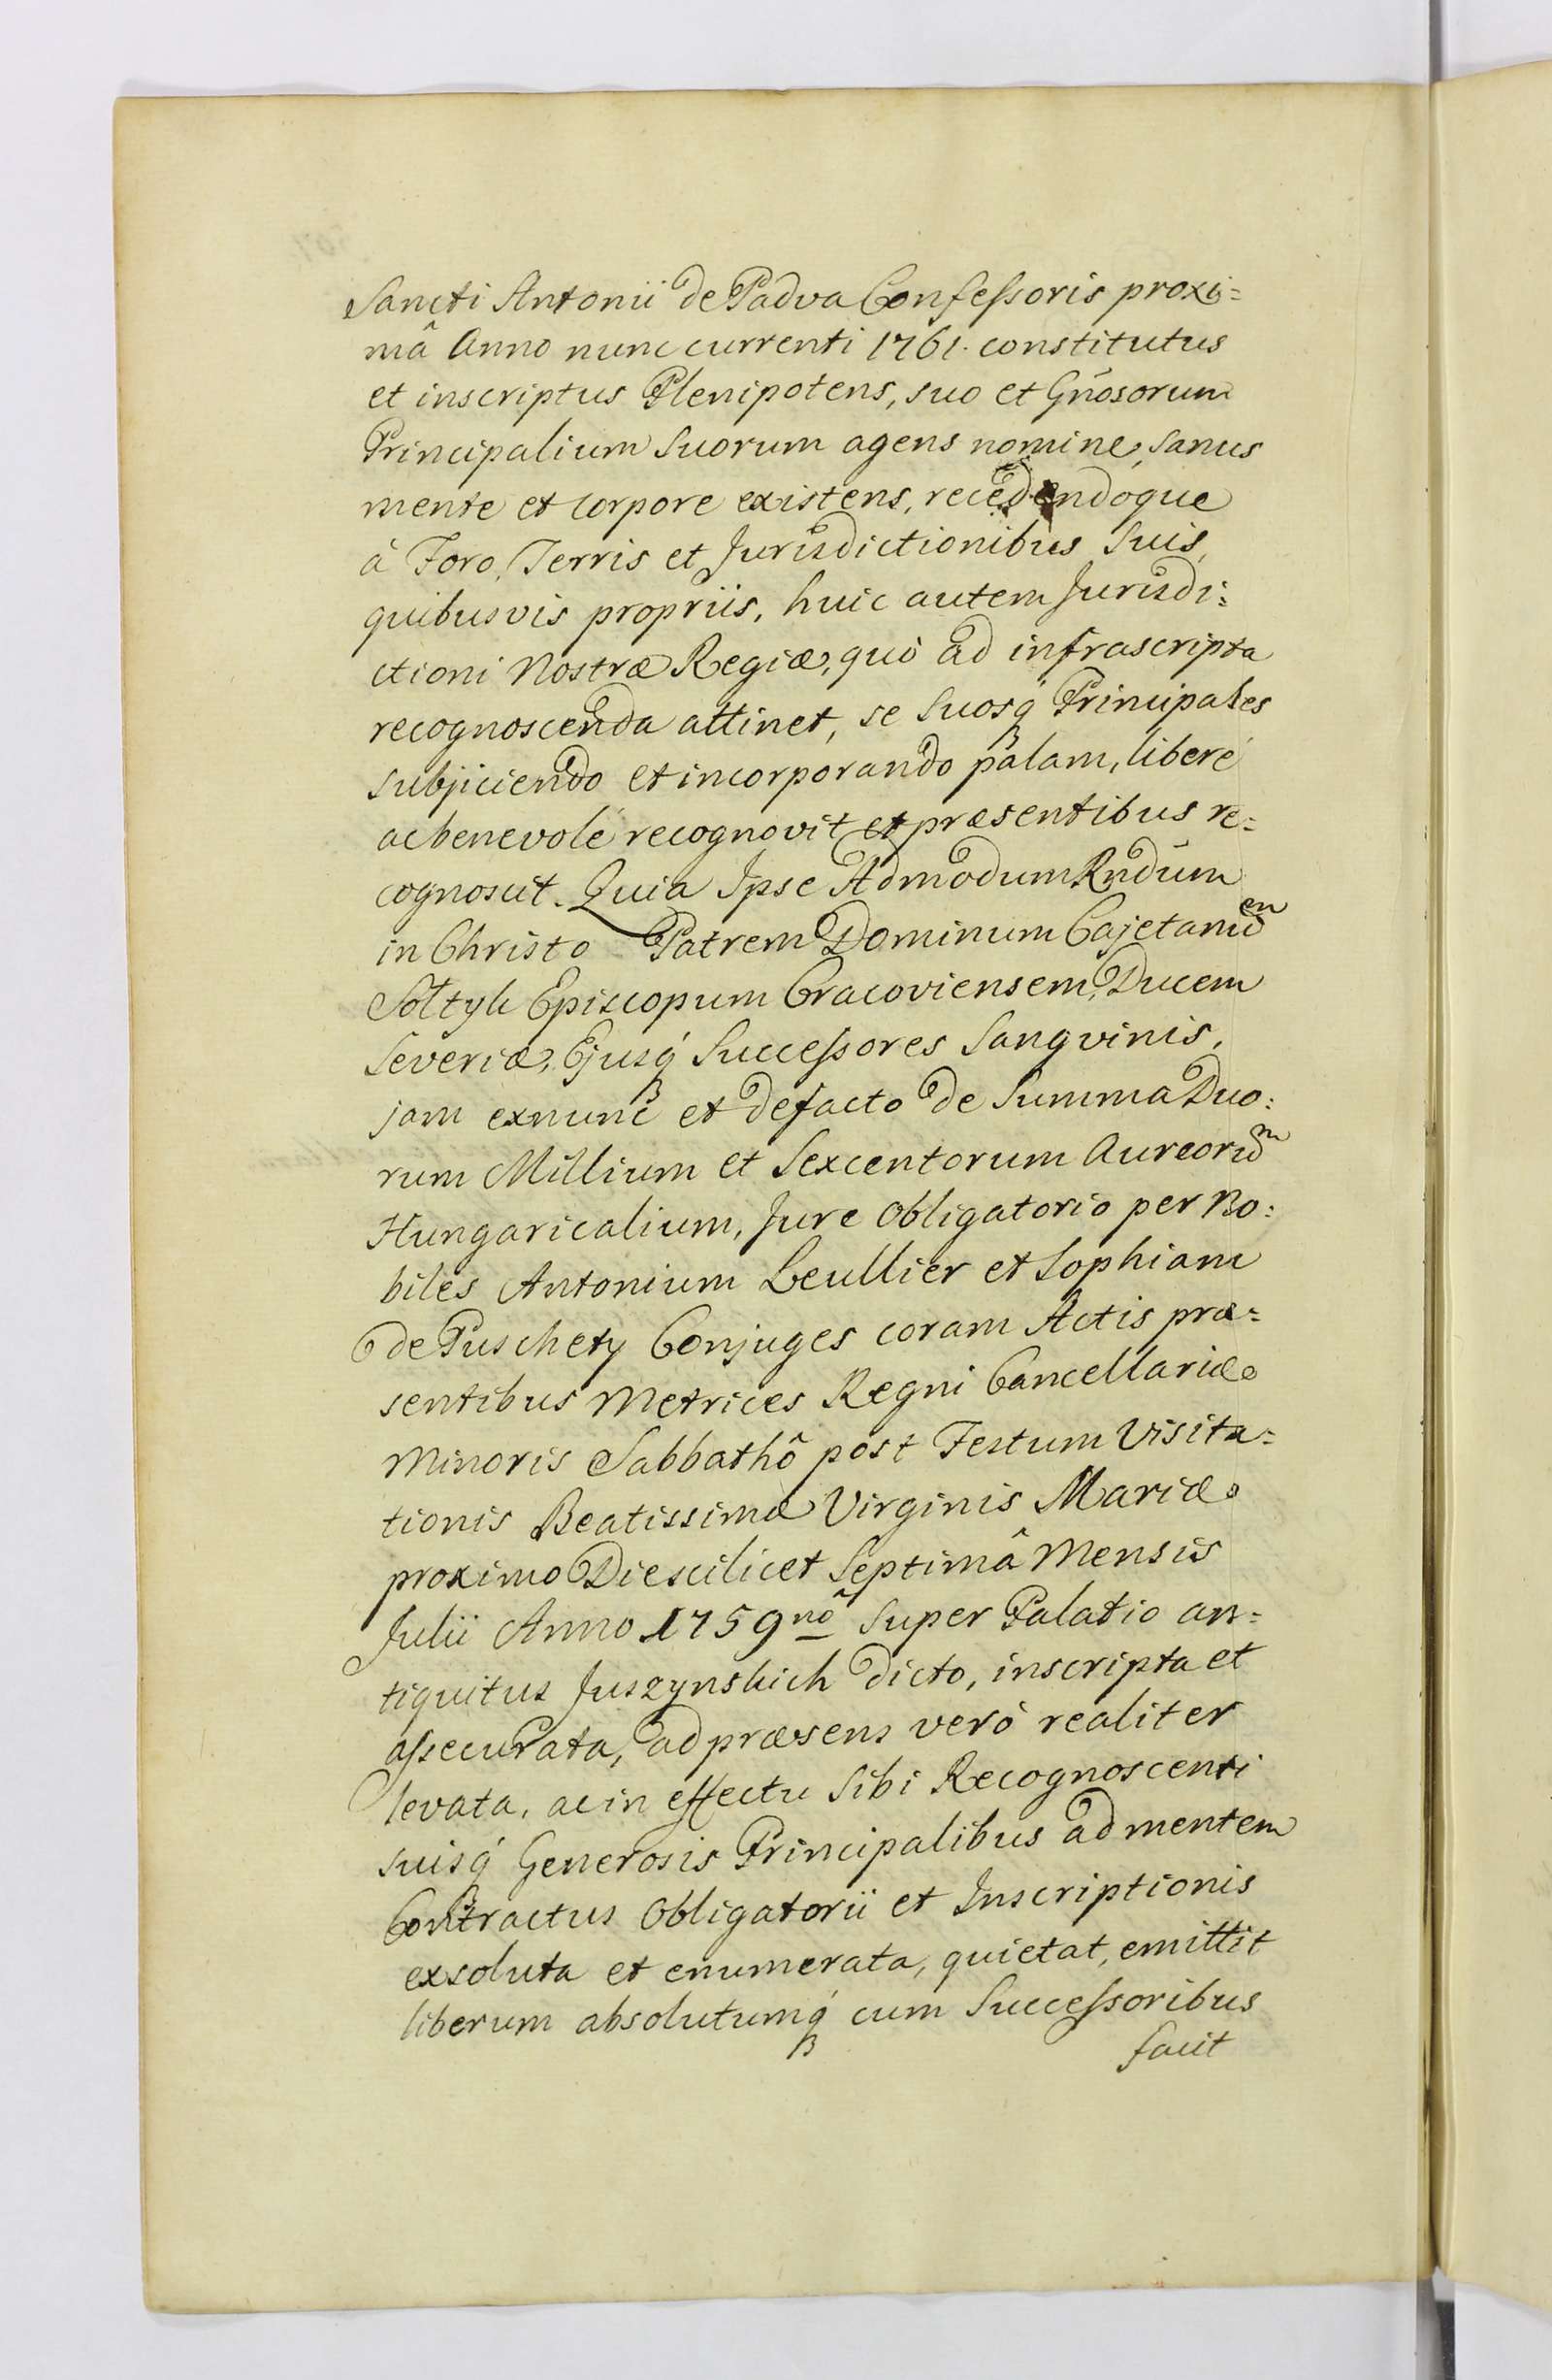 Sancti Antonii de Padva Confessoris proxi=
mâ Anno nunc currenti 1761. constitutus
et inscriptus Plenipotens, suo et Gn̄osorum
Principalium Suorum agens nomine, sanus
mente et corpore existens, recedendoque
à Foro, Terris et Jurisdictionibus Suis,
quibusvis propriis, huic autem Jurisdi=
ctioni Nostræ Regiæ, quò ad infrascripta
recognoscenda attinet, se Suosq́ Principales
subjiciendo et incorporando palam, liberé
ac benevolé recognovit et præsentibus re=
cognoscit. Quia Ipse Admodum Rnd̄um
in Christo Patrem Dominum Cajetanum
Sołtyk Episcopum Cracoviensem, Ducem
Severiæ, Ejusq́ Successores Sangvinis,
jam exnunc et defacto de Summa Duo=
rum Millium et Sexcentorum Aureorum
Hungaricalium, Jure Obligatorio per No=
biles Antonium Leullier et Sophiam
de Puschety Conjuges coram Actis præ=
sentibus Metrices Regni Cancellariæ
Minoris Sabbathô post Festum Visita=
tionis Beatissimæ Virginis Mariæ
proximo Die scilicet Septimâ Mensis
Julii Anno 1759nô Super Palatio an=
tiquitus Juszynskich dicto, inscripta et
assecurata, ad præsens verò realiter
levata, ac in effectu Sibi Recognoscenti
suisq́ Generosis Principalibus ad mentem
Contractus Obligatorii et Inscriptionis
exsoluta et enumerata, quietat, emittit
liberum absolutumq́ cum Successoribus
facit